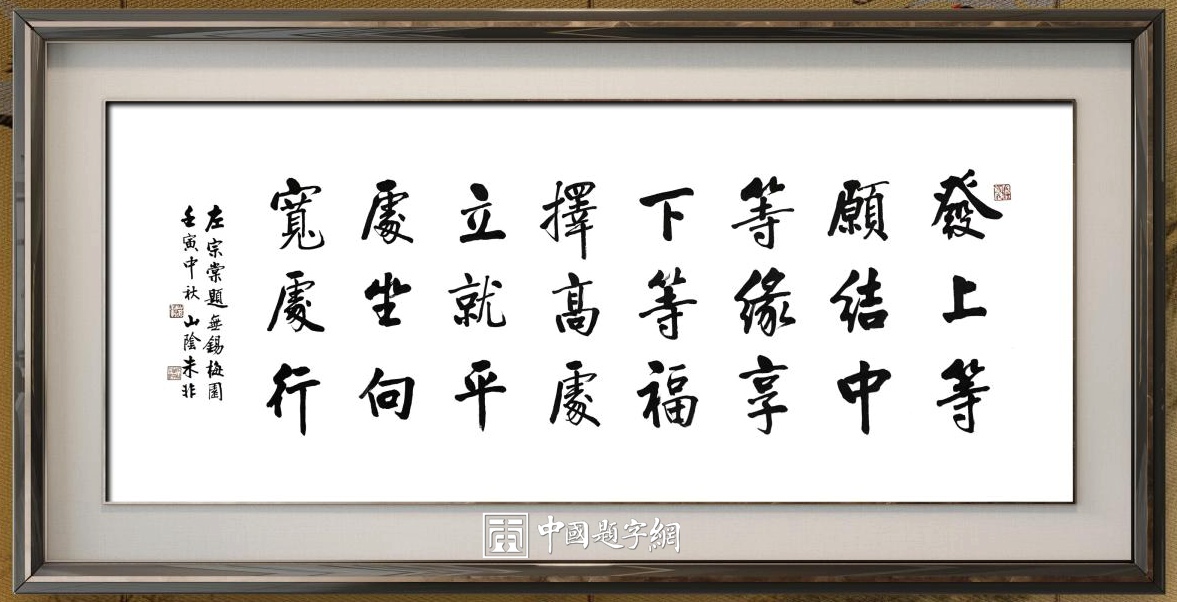 發上等
願結中
等緣享
下等福
擇高處
立就平
處坐向
寬處行
左宗棠題無錫梅園
壬寅中秋山陰未非
中國題字網